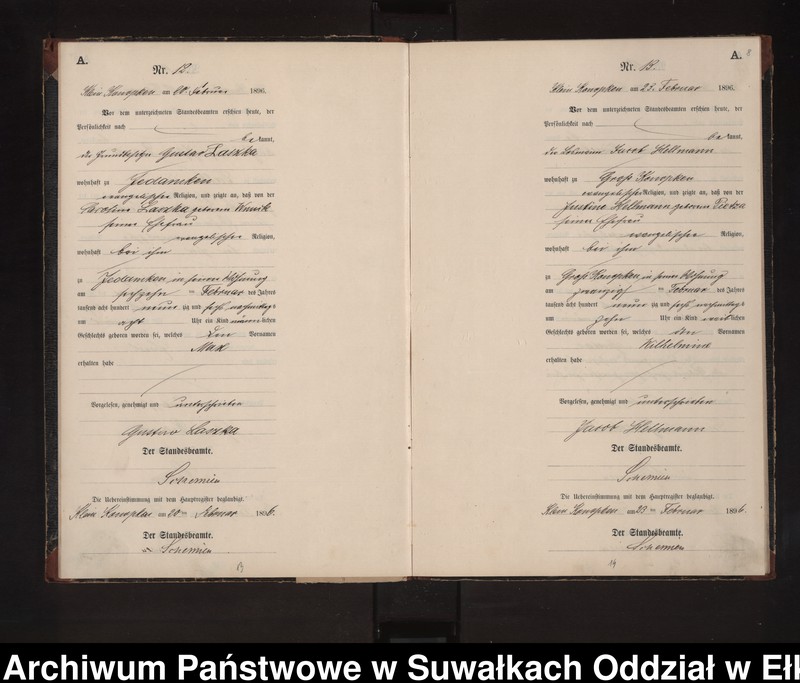 A.
Nr. 13.
Klein Konopken am 20. Februar 1896.
Vor dem unterzeichneten Standesbeamten erschien heute, der
Persönlichkeit nach
be kannt,
der Grundbesitzer Gustav Laszka
wohnhaft zu Jedamken
evangelischer Religion, und zeigte an, daß von der
Caroline Laszka geborenen
seiner Ehefrau
evangelischer Religion,
wohnhaft bei ihm
zu Jedamken in seiner Wohnung
am sechszehn ten Februar des Jahres
tausend acht hundert neun zig und sechs nachmittags
um acht Uhr ein Kind männlichen
Geschlechts geboren worden sei, welches den Vornamen
Max
erhalten habe
Vorgelesen, genehmigt und unterschrieben
Gustav Laszka
Der Standesbeamte.
Schemien
Die Uebereinstimmung mit dem Hauptregister beglaubigt.
Klein Konopken am 20ten Februar 1896.
Der Standesbeamte.
Schemien
13
A.
Nr.
Klein Konopken am 23. Februar 1896.
Vor dem unterzeichneten Standesbeamten erschien heute, der
Persönlichkeit nach
be kannt,
der Losmann Jacob Hellmann
wohnhaft zu Groß Konopken
evangelischer Religion, und zeigte an, daß von der
Justine Hellmann geborenen
seiner Ehefrau
evangelischer Religion,
wohnhaft bei ihm
zu Groß Konopken in seiner Wohnung
am zwanzigsten Februar des Jahres
tausend acht hundert neun zig und sechs nachmittags
um zehn Uhr ein Kind weiblichen
Geschlechts geboren worden sei, welches den Vornamen
Wilhelmine
erhalten habe
Vorgelesen, genehmigt und unterschrieben
Jacob Hellmann
Der Standesbeamte.
Schemien
Die Uebereinstimmung mit dem Hauptregister beglaubigt.
Klein Konopken am 23ten Februar 1896.
Der Standesbeamte.
Schemien
14
Archiwum Państwowe w Suwałkach Oddział w Ełk